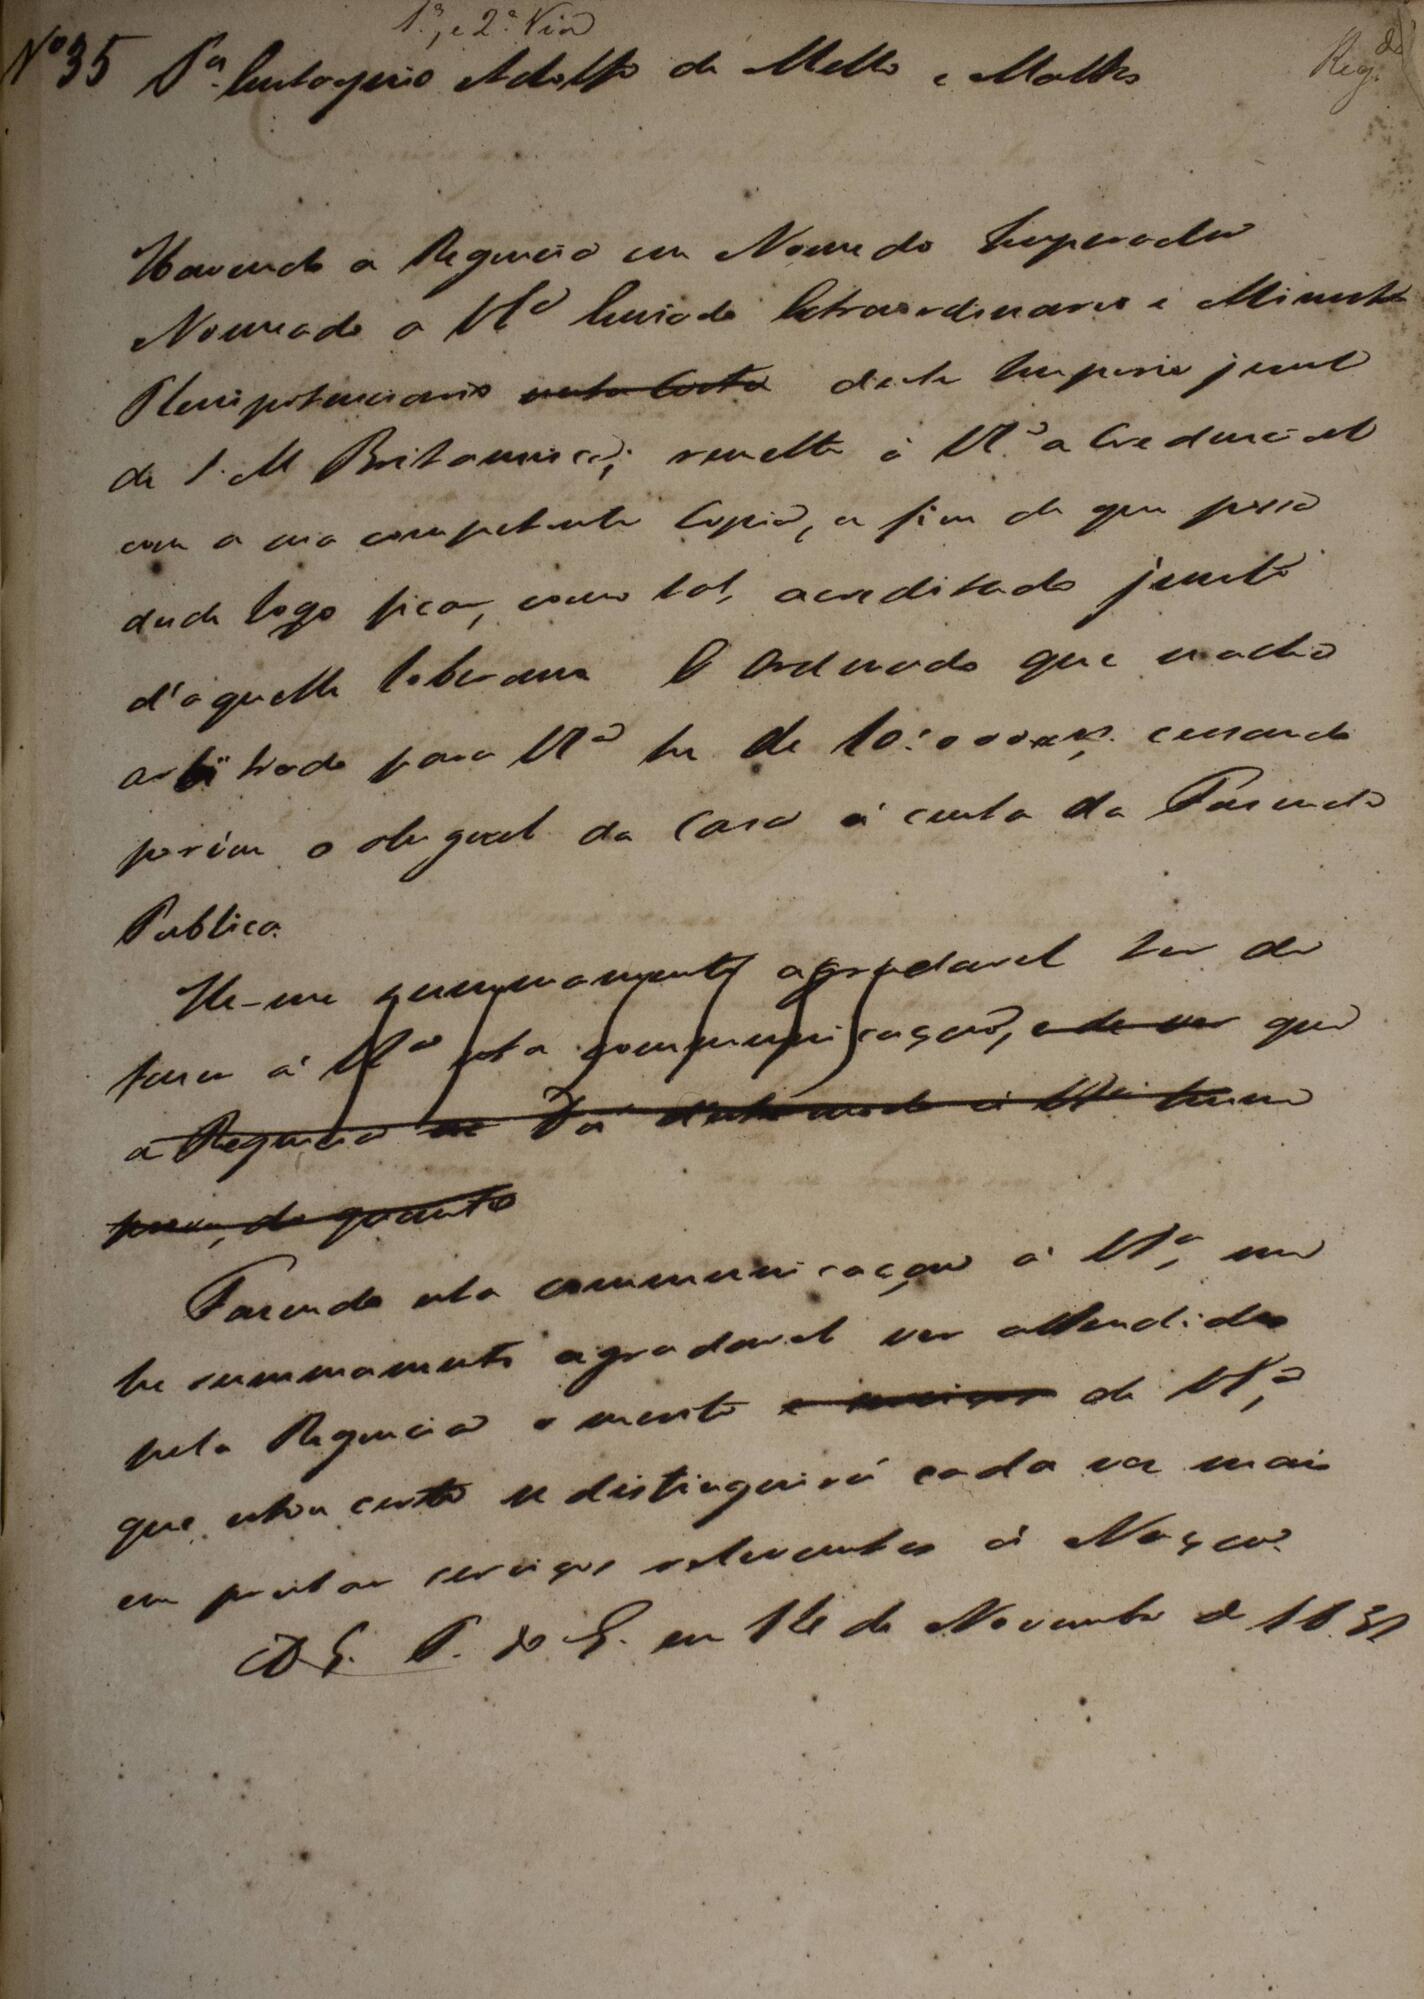 1ª, e 2ª Via
Nº 35 Pª Eustaquio Adolfo de Mello e Mattos
Regda
Havendo a Regencia em Nome do Imperador
Nomeado a VSª Enviado Extraordinario e Ministro
Plenipotenciario nesta Corte deste Imperio junto
de S. M Britannica; remetto á VSª a Credencial
com a sua competente Copia, a fim de que possa
desde logo ficar, como tal, acreditado junto
d'aquelle Soberano O Ordenado que se acha
arbitrado para VSª he de 10:000 rs. cessando
porém o aluguel da Casa á custa da Fazenda
Publica.
He-me summamente agradavel ter de
fazer á VSª esta communicação, e de ver que
a Regencia Dá d'este modo á VSª huma
prova, de quanto
Fazendo esta communicação á VSª, me
he summamente agradavel ver attendido
pela Regencia o merito e serviços de VSª,
que estou certo se distinguirá cada vez mais
em prestar serviços relevantes á Nação.
D. G. P. do G. em 14 de Novembro de 1831